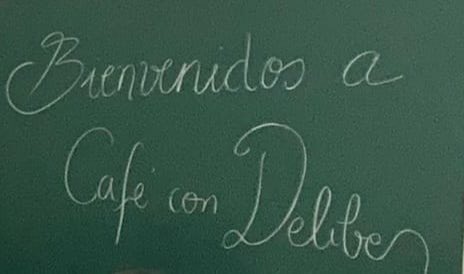 Bienvenidos a
Café con Delibes